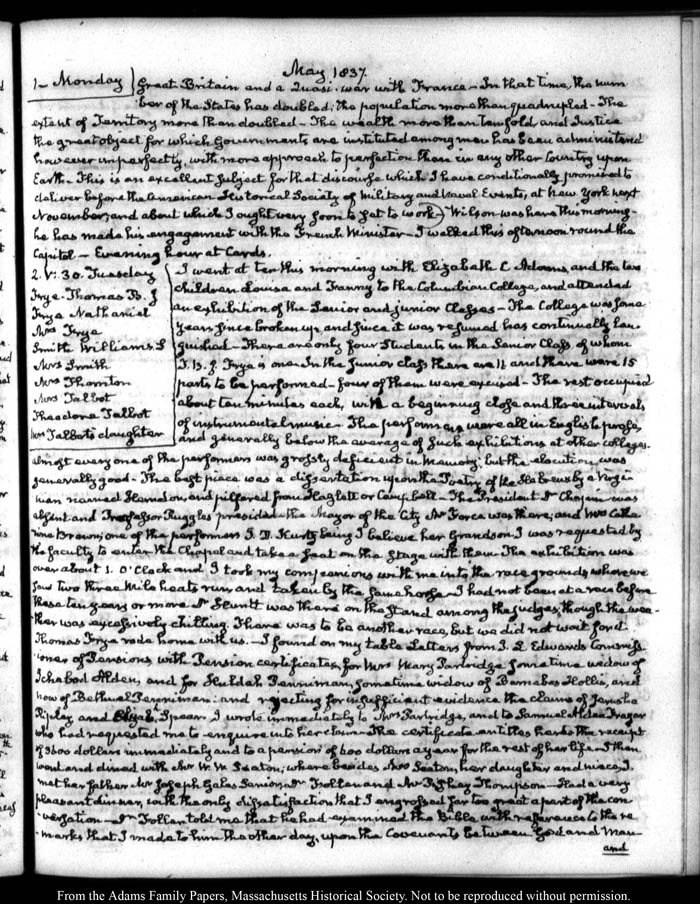 May 1837.
1- Monday
Great Britain and a Quasi-war with France - In that time, the num
ber of the States has doubled; the population more than quadrupled - The
extent of Territory more than doubled - The wealth more than tenfold, and Justice
the great object for which Governments are instituted among men has been administered
however imperfectly, with more approach to perfection than in any other Country upon
Earth - This is an excellent subject for that discourse which I have conditionally promised to
deliver before the American Historical Society of Military and Naval Events, at New York next
November; and about which I ought very soon to set to work -) Wilson was here this morning -
he has made his engagement with the French Minister - I walked this afternoon round the
Capitol - Evening hour at Cards.
2. V: 30. Tuesday
Frye Thomas B. J
Frye Nathaniel
Mrs Frye
Smith William S
Mrs Smith
Mrs Thornton
Mrs Talbot
Theodore Talbot
Mrs Talbot's daughter
I went at ten this morning with Elizabeth C Adams, and the two
children Louisa and Fanny to the Columbian College, and attended
an exhibition of the Senior and junior Classes - The College was some
years since broken up, and since it was resumed has continually lan
guished - There are only four Students in the Senior Class, of whom
T. B. J. Frye is one. In the Junior class there are 11 and there were 15
parts to be performed - four of them were excused - The rest occupied
about ten minutes each, with a beginning close and three intervals
of instrumental music - The performances were all in English prose,
and generally below the average of such exhibitions at other colleges.
almost every one of the performers was grossly deficient in memory; but the elocution was
generally good - The best piece was a dissertation upon the Poetry of the Hebrews by a Virgi-
nian named Herndon, and pilfered from Hazlett or Campbell - The President Dr Chapin was
absent and Professor Ruggles presided - the Mayor of the City Mr Force was there; and Mrs Cathe
rine Brown; one of the performers J. D. Kurtz being I believe her Grandson. I was requested by
the faculty to enter the Chapel and take a seat on the Stage with them. The exhibition was
over about 1. O'Clock and I took my companions with me into the race grounds where we
saw two three mile heats run and taken by the same horse. I had not been at a race before
these ten years or more. Dr Huntt was there on the Stand among the judges, though the wea-
ther was excessively chilling. There was to be another race, but we did not wait for it.
Thomas Frye rode home with us. - I found on my table Letters from J. L Edwards Commiss-
ioner of Pensions, with Pension certificates, for Mrs Mary Partridge sometime widow of
Ichabod Alden, and for Huldah Penniman, sometime widow of Barnabas Hollis, and
now of Bethuel Penniman: and rejecting for insufficient evidence the claims of Jerusha
Ripley and Elizab. Spear. I wrote immediately to Mrs Partridge, and to Samuel Alden Frazar
who had requested me to enquire into her claim - The certificate entitles her to the receipt
of 3600 dollars immediately and to a pension of 600 dollars a year for the rest of her life - I then
went and dined with Mr W. W. Seaton; where besides Mrs Seaton, her daughter and niece, I
met her father Mr Joseph Gales Senior, Dr Follen and Mr Pishey Thompson - Had a very
pleasant dinner, with the only dissatisfaction that I engrossed far too great a part of the con
versation - Dr Follen told me that he had examined the Bible with reference to the re
marks that I made to him the other day, upon the Covenants between God and Man
and
From the Adams Family Papers, Massachusetts Historical Society. Not to be reproduced without permission.